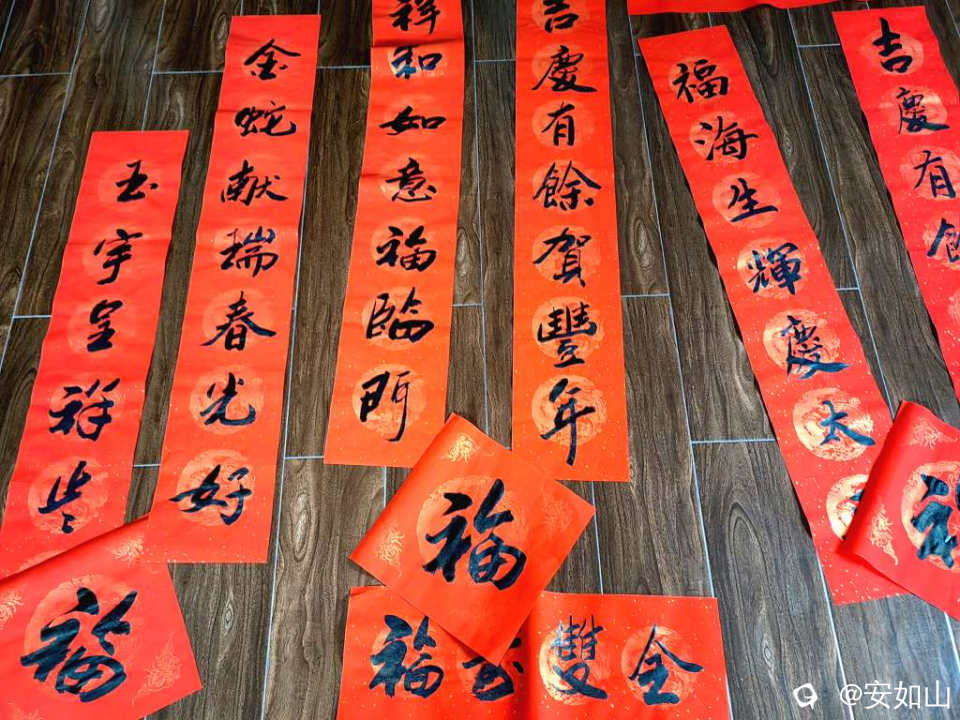 玉宇呈祥
金蛇献瑞春光好
祥和如意福臨門
吉慶有餘賀豐年
福海生輝慶太
吉慶有餘
福
福
福
福 雙全
@安如山